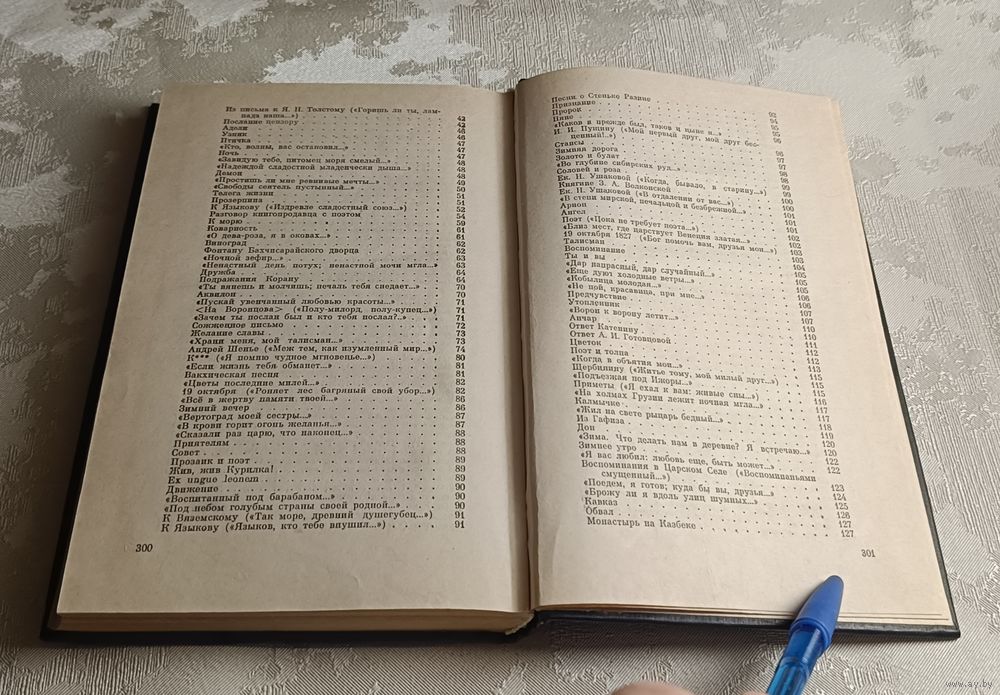 Из письма к Я. Н. Толстому («Горишь ли ты, лам-
пада наша...») 42
Послание цензору 42
Адели 46
Узник 46
Птичка 47
«Кто, волны, вас остановил...» 47
Ночь 47
«Завидую тебе, питомец моря смелый...» 48
«Надеждой сладостной младенчески дыша...» 48
Демон 48
«Простишь ли мне ревнивые мечты...» 49
«Свободы сеятель пустынный...» 50
Телега жизни 51
Прозерпина 51
К Языкову («Издревле сладостный союз...») 52
Разговор книгопродавца с поэтом 54
К морю 59
Коварность 61
«О дева-роза, я в оковах...» 61
Виноград 62
Фонтану Бахчисарайского дворца 62
«Ночной зефир...» 63
«Ненастный день потух; ненастной ночи мгла... 63
Дружба 64
Подражания Корану 64
«Ты вянешь и молчишь; печаль тебя снедает...» 70
Аквилон 70
«Пускай увенчанный любовью красоты...» 71
<На Воронцова> («Полу-милорд, полу-купец...») 71
«Зачем ты послан был и кто тебя послал?..» 71
Сожженное письмо 72
Желание славы 73
«Храни меня, мой талисман...» 73
Андрей Шенье («Меж тем, как изумленный мир...») 74
К*** («Я помню чудное мгновенье...») 80
«Если жизнь тебя обманет...» 81
Вакхическая песня 81
«Цветы последние милей...» 82
19 октября («Роняет лес багряный свой убор...») 82
«Всё в жертву памяти твоей...» 86
Зимний вечер 86
«Вертоград моей сестры...» 87
«В крови горит огонь желанья...» 87
«Сказали раз царю, что наконец...» 88
Приятелям 88
Совет 88
Прозаик и поэт 89
Жив, жив Курилка! 89
Ex ungue leonem 89
Движение 90
«Воспитанный под барабаном...» 90
«Под небом голубым страны своей родной...» 90
К Вяземскому («Так море, древний душегубец...») 91
К Языкову («Языков, кто тебе внушил...») 91
300
Песни о Стеньке Разине
Признание 92
Пророк 94
Няне 95
«Каков я прежде был, таков и ныне я...» 95
И. И. Пущину («Мой первый друг, мой друг бес-
ценный!..») 96
Стансы 96
Зимняя дорога 97
Золото и булат 97
«Во глубине сибирских руд...» 98
Соловей и роза 98
Ек. Н. Ушаковой («Когда, бывало, в старину...») 99
Княгине З. А. Волконской 99
Ек. Н. Ушаковой («В отдалении от вас...») 100
«В степи мирской, печальной и безбрежной...» 100
Арион 101
Ангел 101
Поэт («Пока не требует поэта...») 101
«Близ мест, где царствует Венеция златая...» 102
19 октября 1827 («Бог помочь вам, друзья мои...») 102
Талисман 103
Воспоминание 103
Ты и вы 104
«Дар напрасный, дар случайный...» 104
«Еще дуют холодные ветры...» 105
«Кобылица молодая...» 105
«Не пой, красавица, при мне...» 105
Предчувствие 106
Утопленник 106
«Ворон к ворону летит...» 107
Анчар 107
Ответ Катенину 110
Ответ А. И. Готовцовой 110
Цветок 111
Поэт и толпа 112
«Когда в объятия мои...» 112
Щербинину («Житье тому, мой милый друг...») 113
«Подъезжая под Ижоры...» 115
Приметы («Я ехал к вам: живые сны...») 115
«На холмах Грузии лежит ночная мгла...» 116
Калмычке 117
«Жил на свете рыцарь бедный...» 117
Из Гафиза 118
Дон 119
«Зима. Что делать нам в деревне? Я встречаю...» 120
Зимнее утро 120
«Я вас любил: любовь еще, быть может...» 122
Воспоминания в Царском Селе («Воспоминаньями
смущенный...») 122
«Поедем, я готов; куда бы вы, друзья...» 123
«Брожу ли я вдоль улиц шумных...» 124
Кавказ 125
Обвал 126
Монастырь на Казбеке 127
127
301
www.ay.by